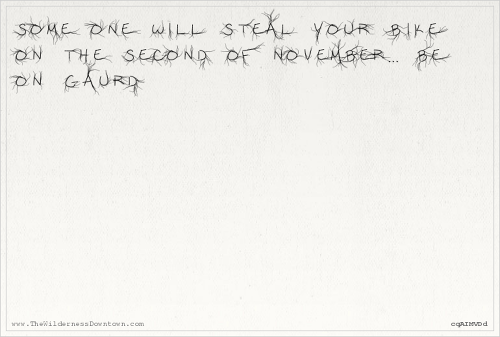 SOME ONE WILL STEAL YOUR BIKE
ON THE SECOND OF NOVEMBER... BE
ON GAURD
www.TheWildernessDowntown.com
cqAIHVDd